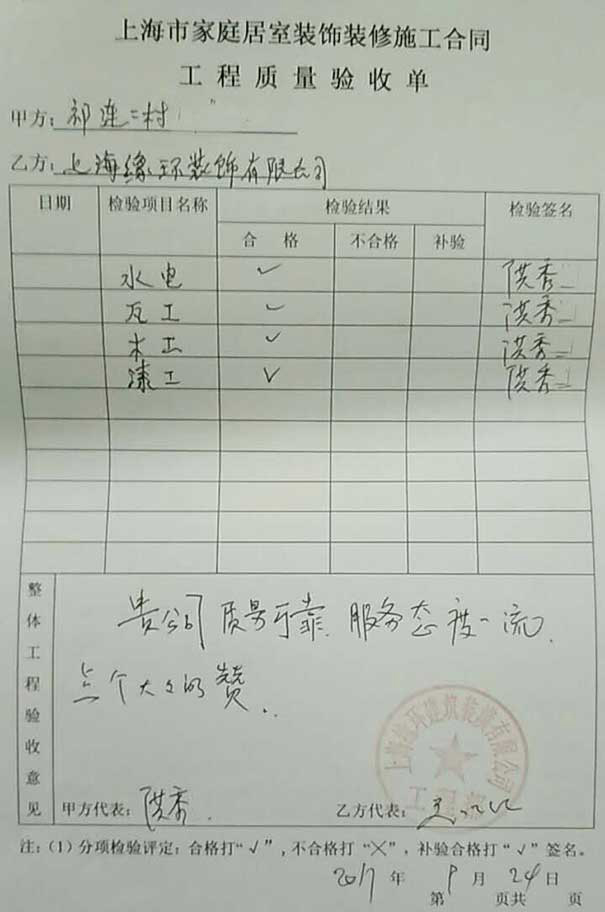 上海市家庭居室装饰装修施工合同
工程质量验收单
甲方：祁连二村
乙方：上海缘环装饰有限公司
日期 检验项目名称 检验结果 检验签名
合格 不合格 补验
水电 ✓ 洪秀
瓦工 ✓ 洪秀
木工 ✓ 洪秀
漆工 ✓ 洪秀
整体工程验收意见
贵公司质量可靠.服务态度一流.
点个大大的赞..
上海缘环建筑装潢有限公司
甲方代表：洪秀.
乙方代表：
注：(1)分项检验评定：合格打“√”，不合格打“×”，补验合格打“√”签名。
2017年9月24日
第 页共 页